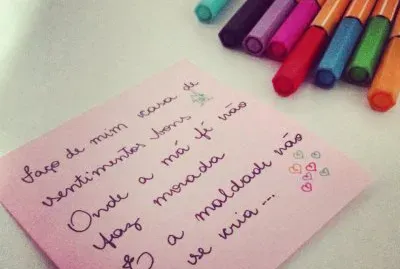 Faço de mim casa de
sentimentos bons
Onde a má fé não
faz morada
E a maldade não
se cria...